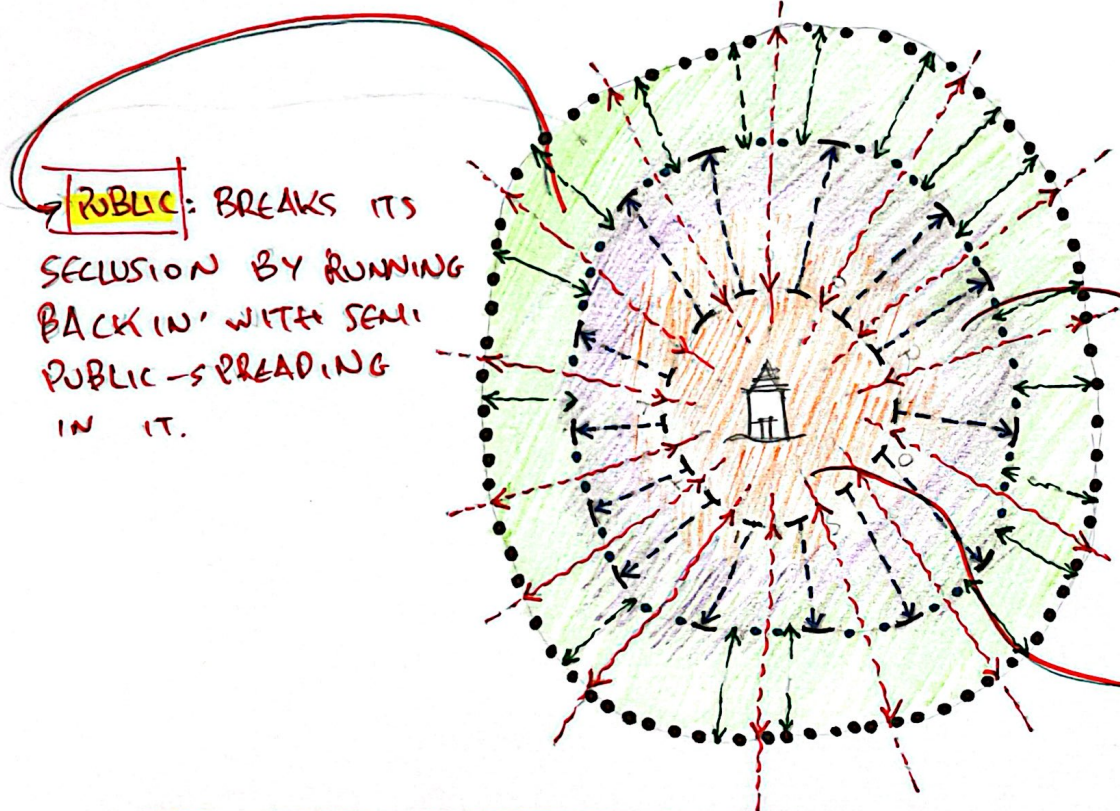 PUBLIC: BREAKS ITS
SECLUSION BY RUNNING
BACK IN' WITH SEMI
PUBLIC-SPREADING
IN IT.